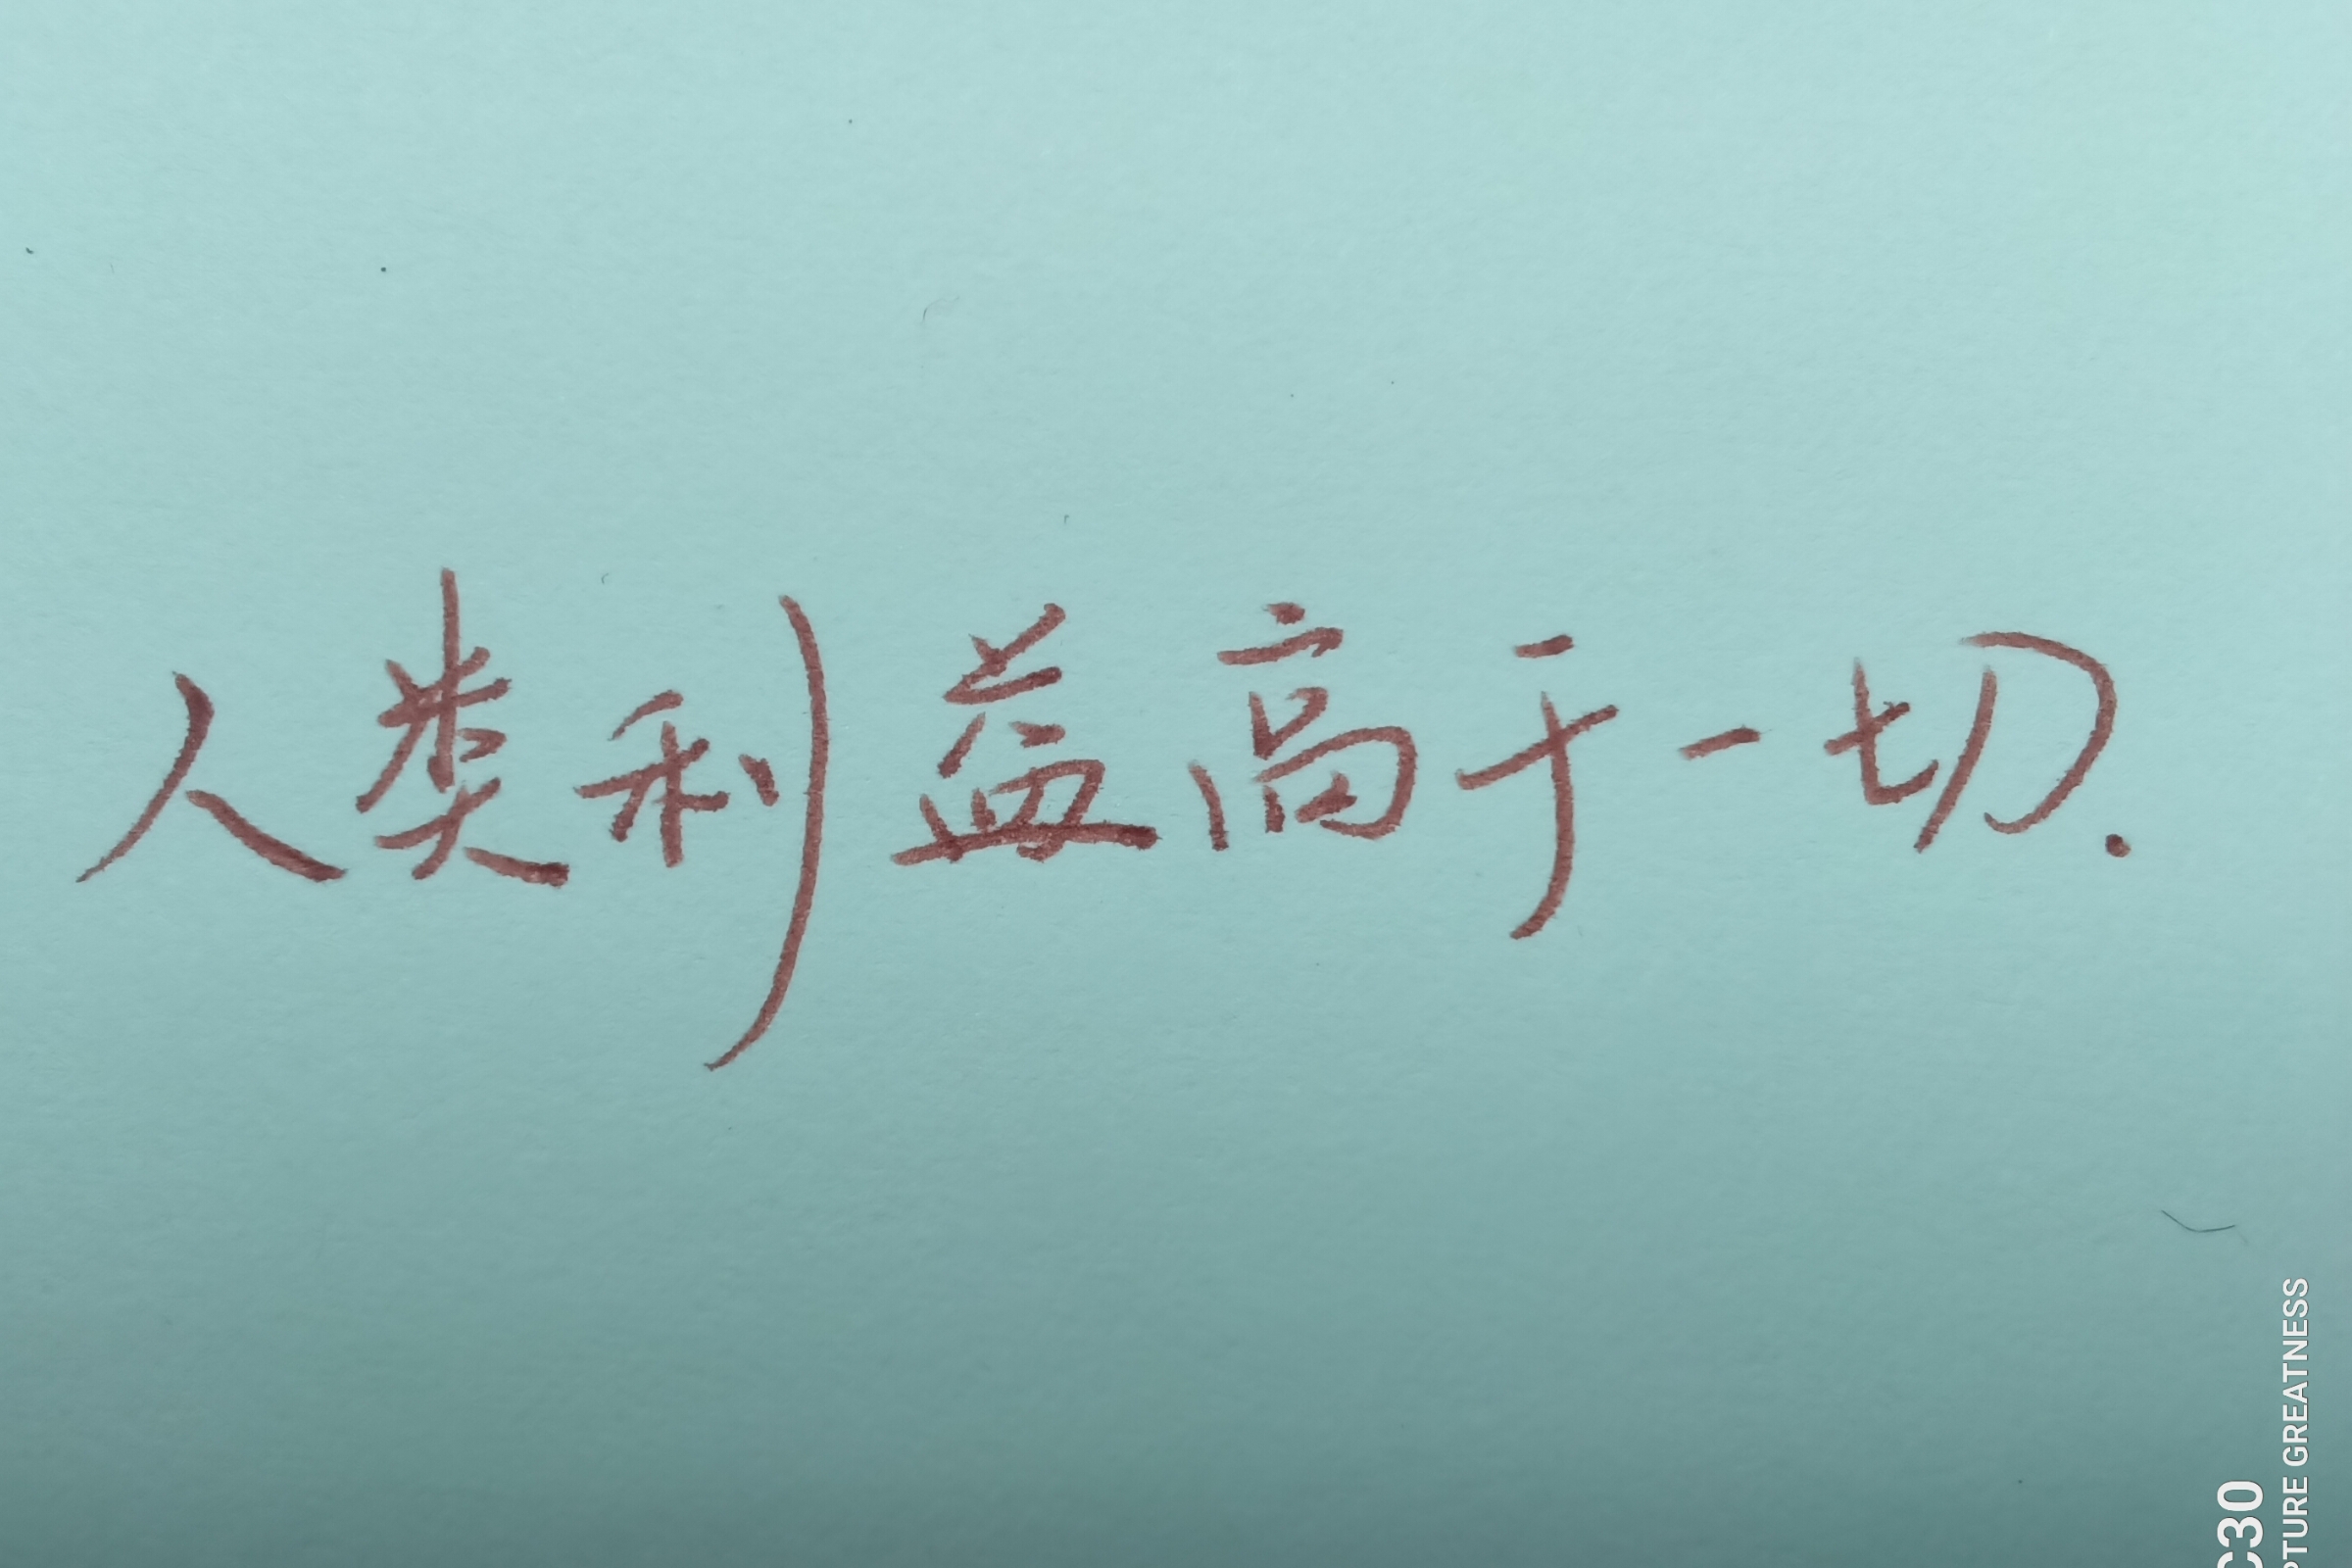 人类利益高于一切.
C30
PTURE GREATNESS